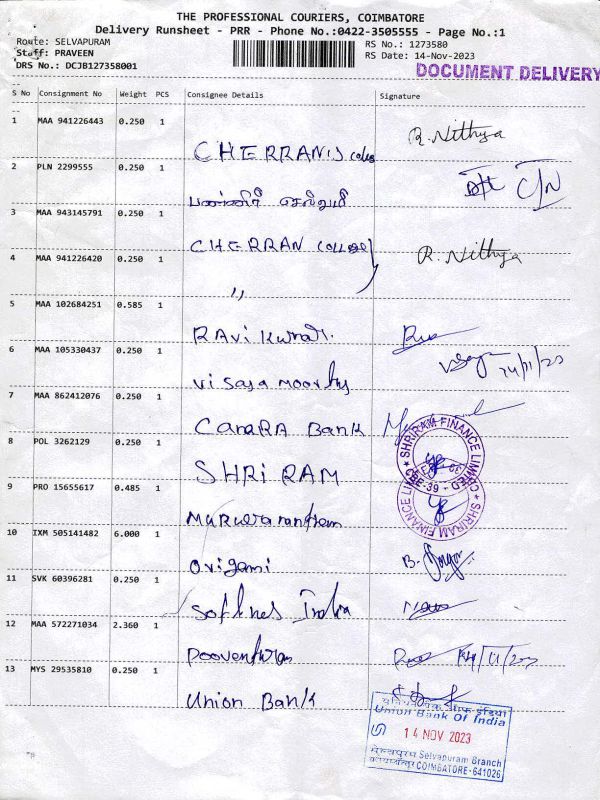 THE PROFESSIONAL COURIERS, COIMBATORE
Delivery Runsheet - PRR - Phone No.:0422-3505555 - Page No.:1
Route: SELVAPURAM
Staff: PRAVEEN
DRS No.: DCJB127358001
RS No.: 1273580
RS Date: 14-Nov-2023
DOCUMENT DELIVERY
S No Consignment No Weight PCS Consignee Details Signature
1 MAA 941226443 0.250 1 R. Nithya
CHERRAN'S
2 PLN 2299555 0.250 1 C/N
3 MAA 943145791 0.250 1
CHERRAN College
4 MAA 941226420 0.250 1 R. Nithya
"
5 MAA 102684251 0.585 1
RAVi kumar.
6 MAA 105330437 0.250 1
visaya moorthy
7 MAA 862412076 0.250 1
CanaRA Bank
8 POL 3262129 0.250 1
SHRiRAM
SHRIRAM FINANCE LIMITED
CBE-39
9 PRO 15655617 0.485 1
SHRIRAM FINANCE LIMITED
10 IXM 505141482 6.000 1
origami
11 SVK 60396281 0.250 1
India
12 MAA 572271034 2.360 1
13 MYS 29535810 0.250 1
Union Bank
यूनियन बैंक ऑफ इंडिया
Union Bank Of India
14 NOV 2023
Selvapuram Branch
COIMBATORE-641026